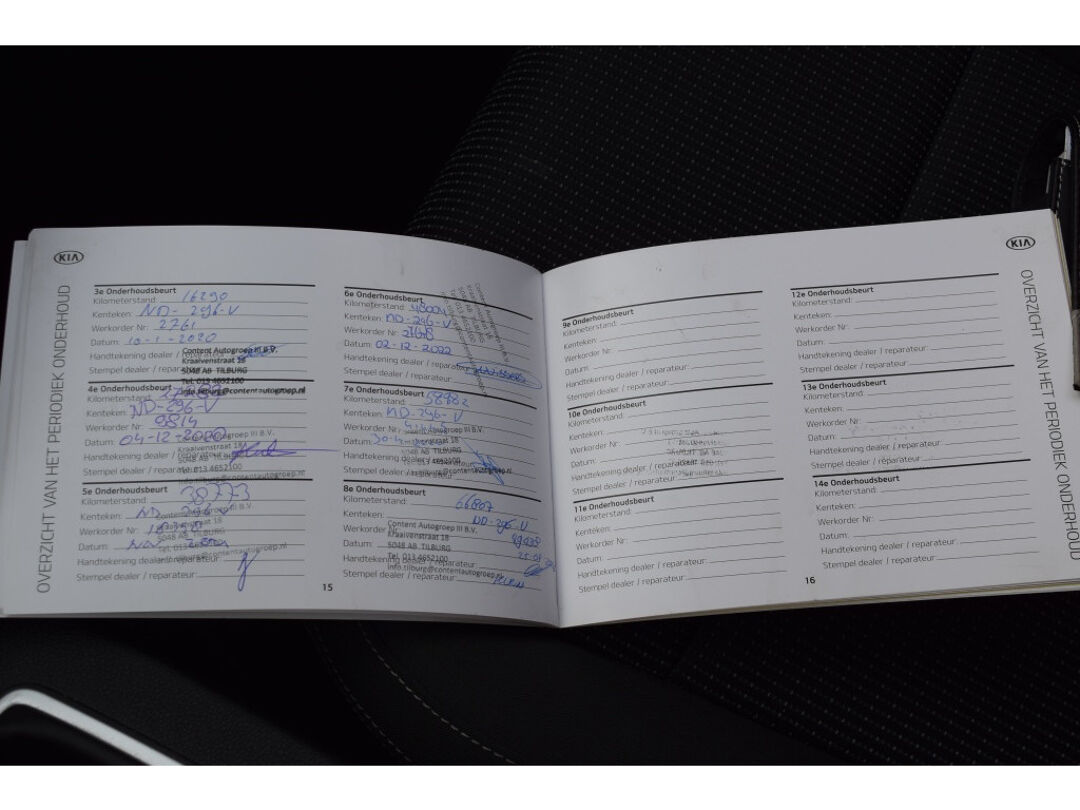 KIA
OVERZICHT VAN HET PERIODIEK ONDERHOUD
3e Onderhoudsbeurt
Kilometerstand: 16290
Kenteken: ND-296-V
Werkorder Nr: 2761
Datum: 10-1-2020
Handtekening dealer /
Stempel dealer / reparateur:
Content Autogroep III B.V.
Kraaivenstraat 18
5048 AB TILBURG
Tel. 013 4652100
info.tilburg@contentautogroep.nl
4e Onderhoudsbeurt
Kilometerstand:
Kenteken: ND-296-V
Werkorder Nr: 9814
Datum: 04-12-2020
Handtekening dealer
Stempel dealer / reparateur
5048 AB TILBURG
Tel. 013 4652100
5e Onderhoudsbeurt
Kilometerstand: 38773
Kenteken:
Werkorder Nr:
Datum:
Handtekening dealer / reparateur:
Stempel dealer / reparateur:
6e Onderhoudsbeurt
Kilometerstand: 48004
Kenteken: ND-296-V
Werkorder Nr:
Datum: 02-12-2022
Handtekening dealer / reparateur
Stempel dealer / reparateur
7e Onderhoudsbeurt
Kilometerstand: 58482
Kenteken: ND-296-V
Werkorder Nr:
Datum:
Handtekening dealer
Stempel dealer / reparateur
8e Onderhoudsbeurt
Kilometerstand: 66807
Kenteken: ND-296-V
Werkorder Nr:
Datum:
Handtekening dealer / reparateur:
Stempel dealer / reparateur:
Content Autogroep III B.V.
Kraaivenstraat 18
5048 AB TILBURG
Tel. 013 4652100
info.tilburg@contentautogroep.nl
15
9e Onderhoudsbeurt
Kilometerstand:
Kenteken:
Werkorder Nr:
Datum:
Handtekening dealer / reparateur:
Stempel dealer / reparateur:
10e Onderhoudsbeurt
Kilometerstand:
Kenteken:
Werkorder Nr:
Datum:
Handtekening dealer / reparateur:
Stempel dealer / reparateur:
11e Onderhoudsbeurt
Kilometerstand:
Kenteken:
Werkorder Nr:
Datum:
Handtekening dealer / reparateur:
Stempel dealer / reparateur:
12e Onderhoudsbeurt
Kilometerstand:
Kenteken:
Werkorder Nr:
Datum:
Handtekening dealer / reparateur:
Stempel dealer / reparateur:
13e Onderhoudsbeurt
Kilometerstand:
Kenteken:
Werkorder Nr:
Datum:
Handtekening dealer / reparateur:
Stempel dealer / reparateur:
14e Onderhoudsbeurt
Kilometerstand:
Kenteken:
Werkorder Nr:
Datum:
Handtekening dealer / reparateur:
Stempel dealer / reparateur:
16
KIA
OVERZICHT VAN HET PERIODIEK ONDERHOUD